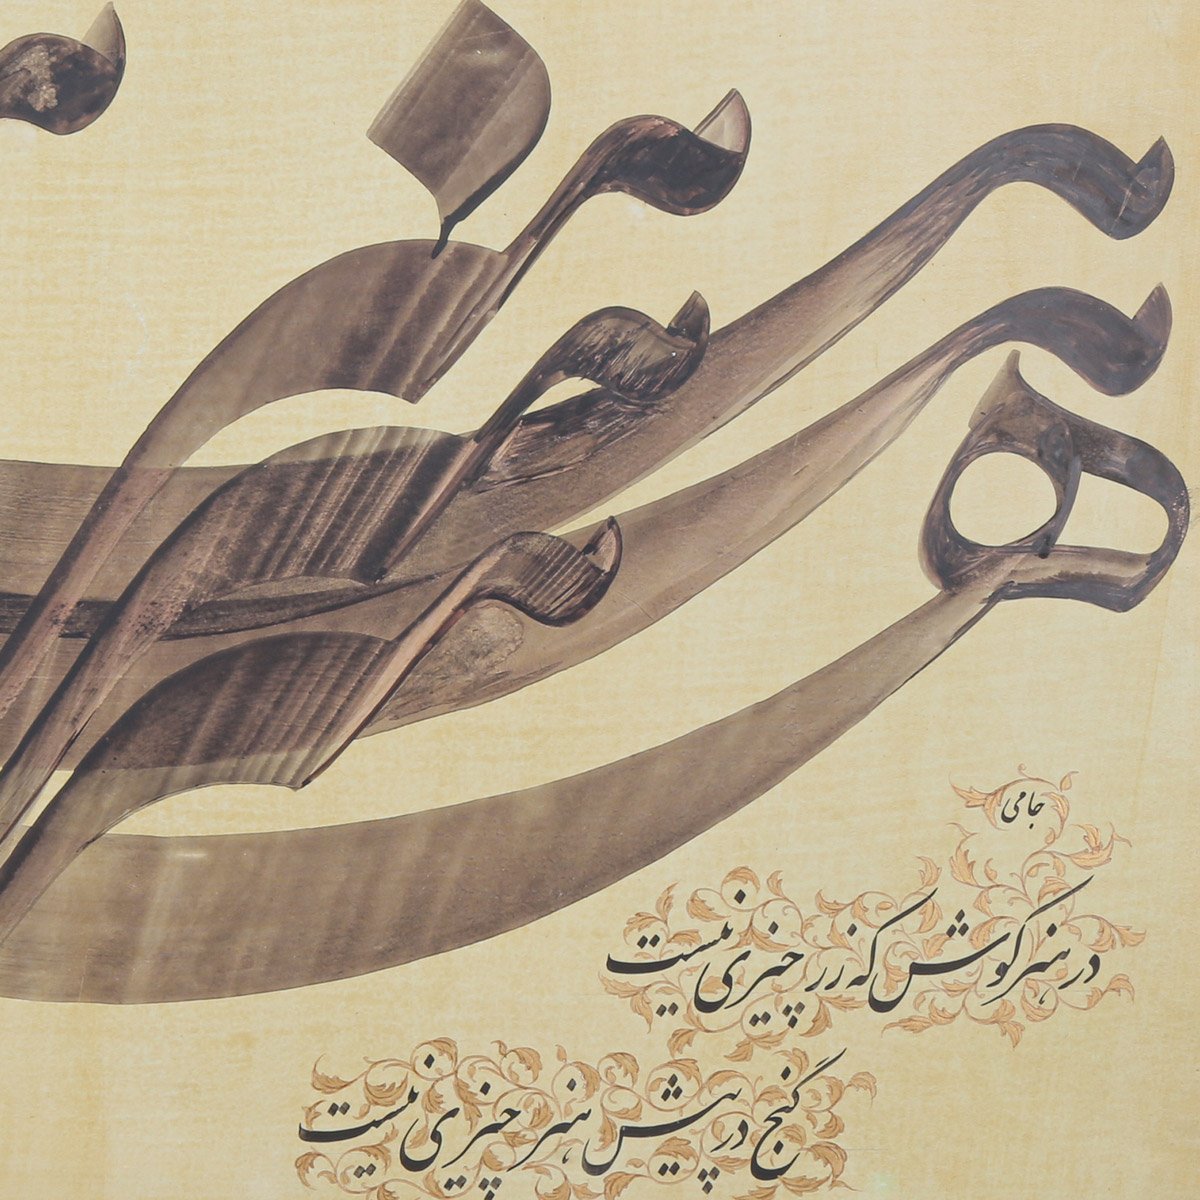 جامی
در هنر کوش که زر چیزی نیست
گنج در پیش هنر چیزی نیست